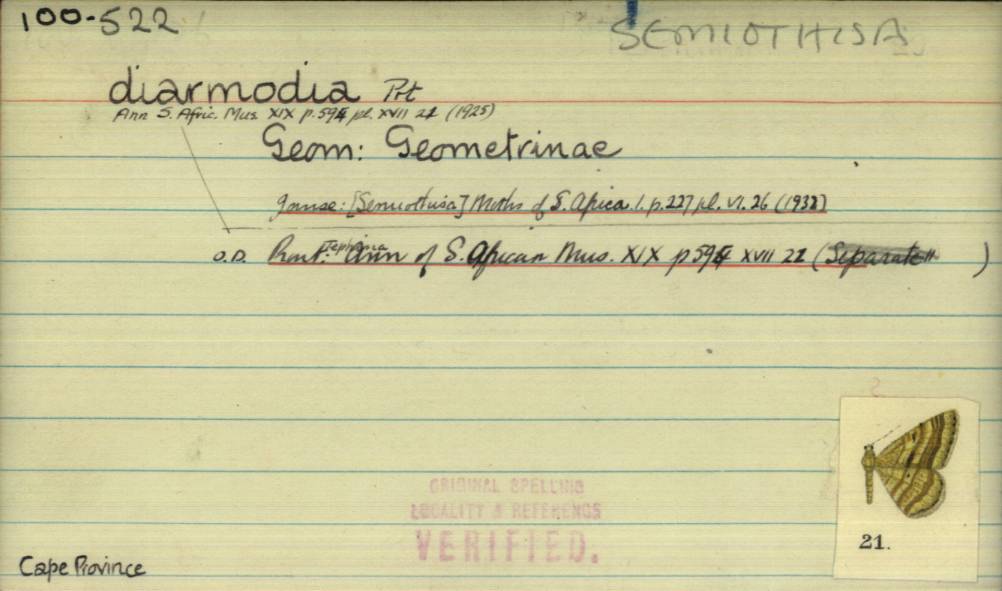 100-522
SEMIOTHISA
diarmodia Prt
Ann S. Afric. Mus. XIX p.594 pl. XVII 21 (1925)
Geom: Geometrinae
Janse: [Semiothisa] Moths of S. Africa. 1. p.227 pl. VI. 26 (1932)
Tephrina
O.D. Prout. Ann of S. African Mus. XIX p594 XVII 21 (Separate )
ORIGINAL SPELLING
LOCALITY & REFERENCE
VERIFIED.
21.
Cape Province